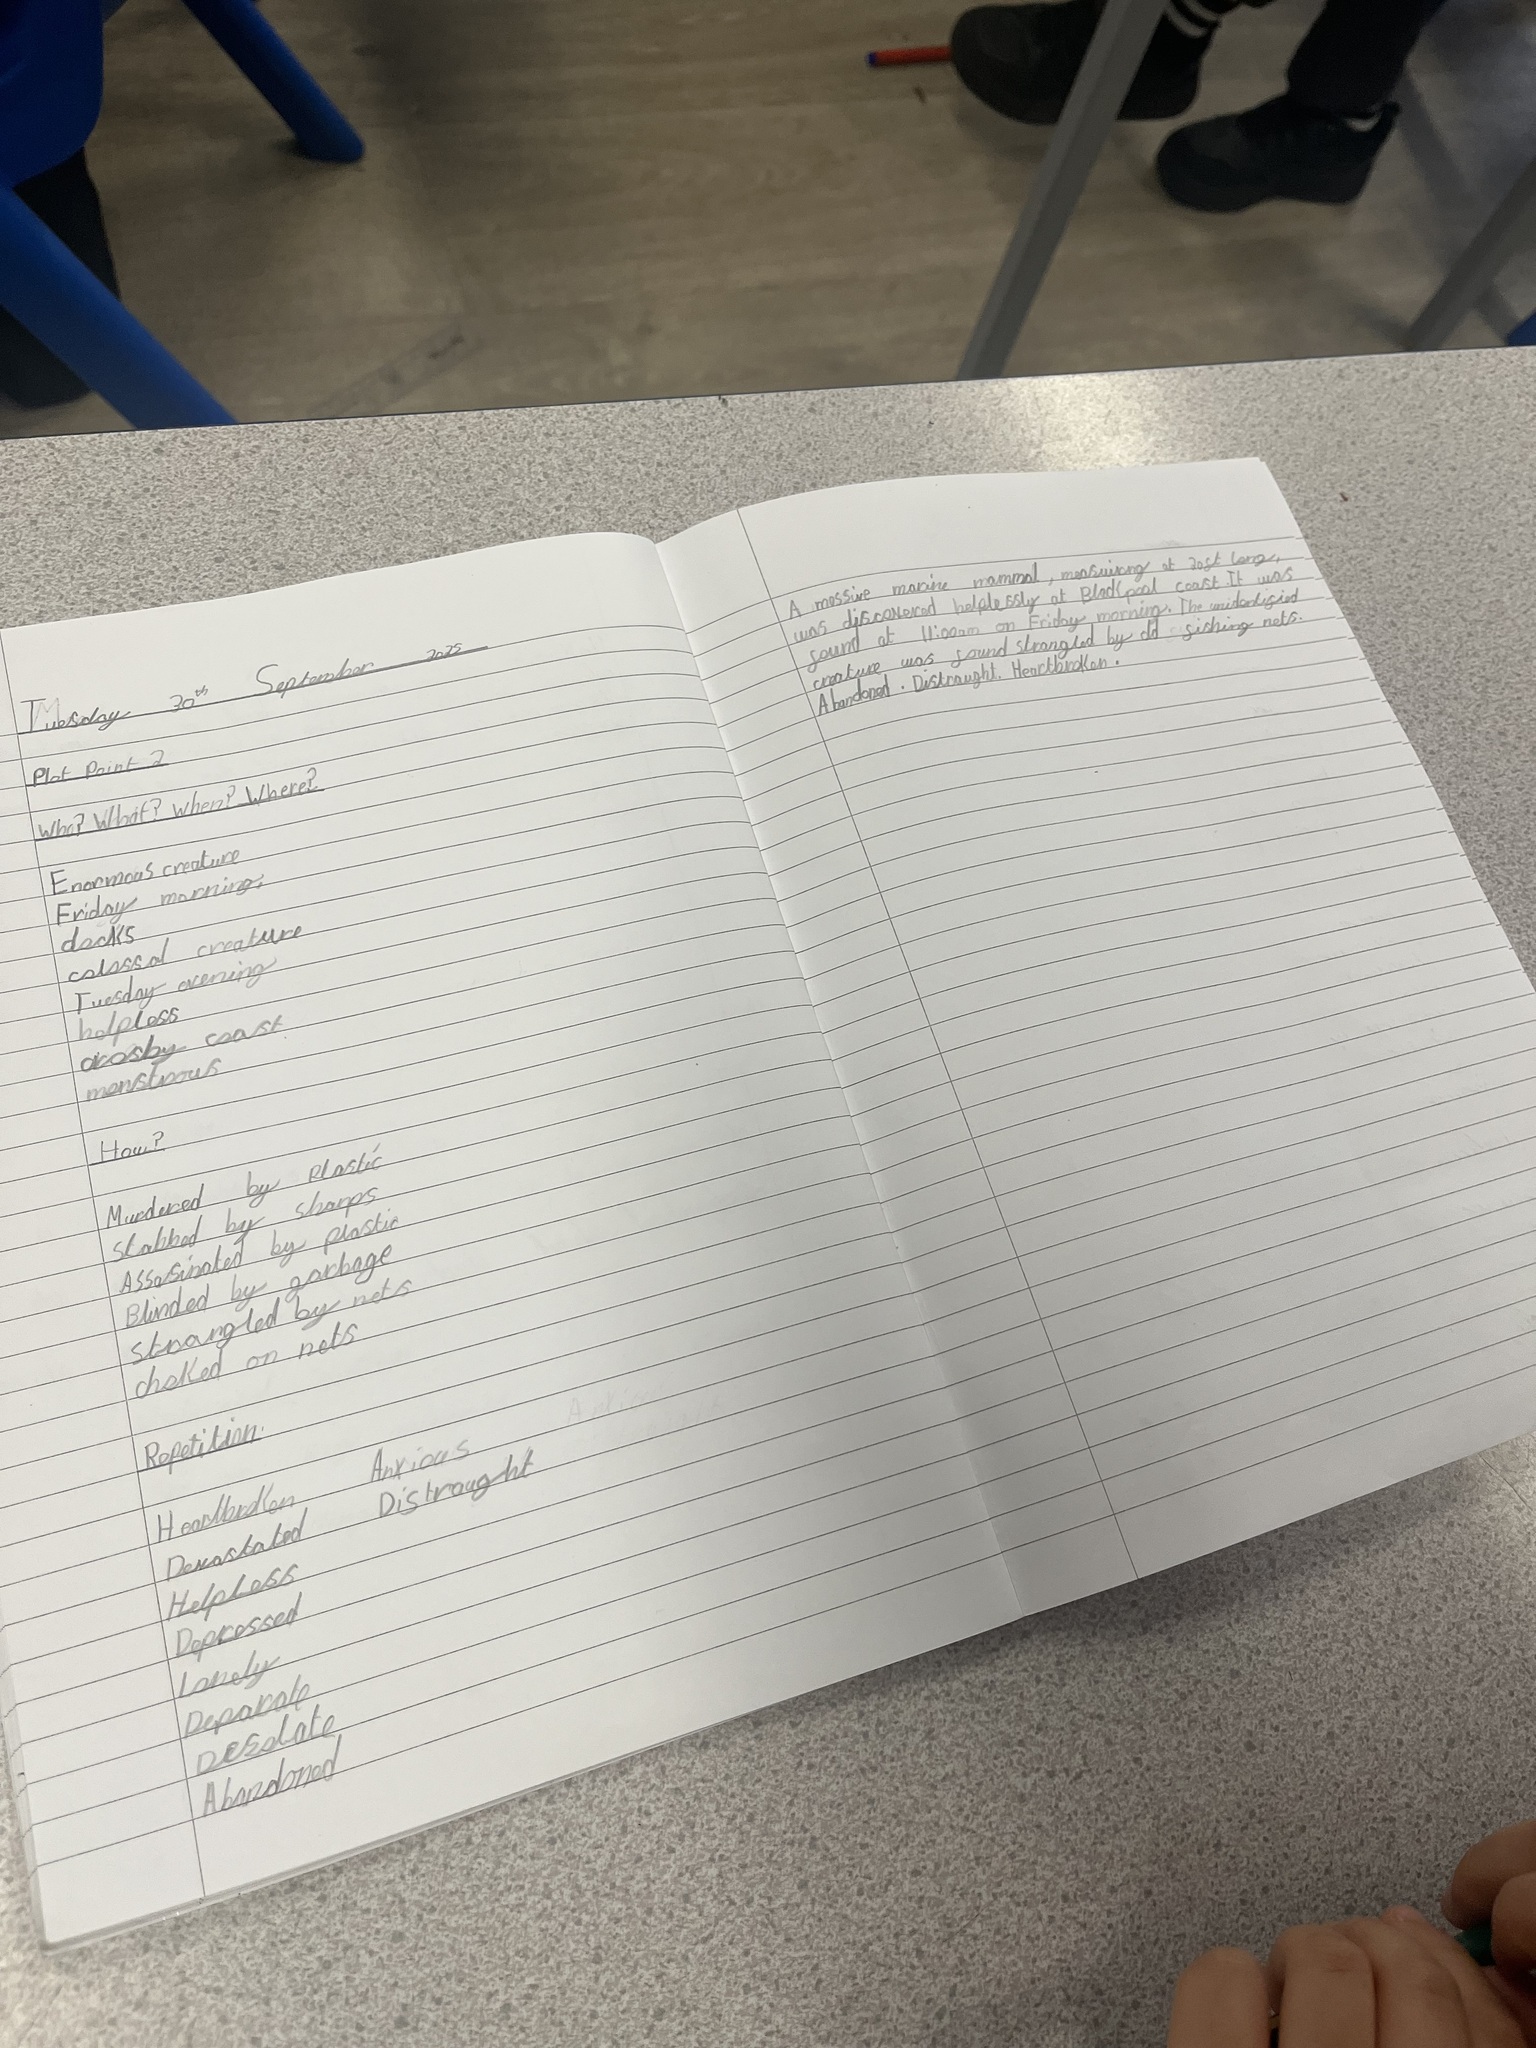 Tuesday 30th September 2025
Plot Point 2
Who? What? When? Where?
Enormous creature
Friday morning,
docks
colossal creature
Tuesday evening
helpless
crosby coast
monstrous
How?
Murdered by plastic
stabbed by sharps
Assasinated by plastic
Blinded by garbage
strangled by nets
choked on nets
Repetition.
Heartbroken Anxious
Devastated Distraught
Helpless
Depressed
Lonely
Deparate
Desolate
Abandoned
A massive marine mammal, measuring at 20ft long,
was discovered helplessly at Blackpool coast. It was
found at 11:00am on Friday morning. The unidentified
creature was found strangled by old fishing nets.
Abandoned. Distraught. Heartbroken.